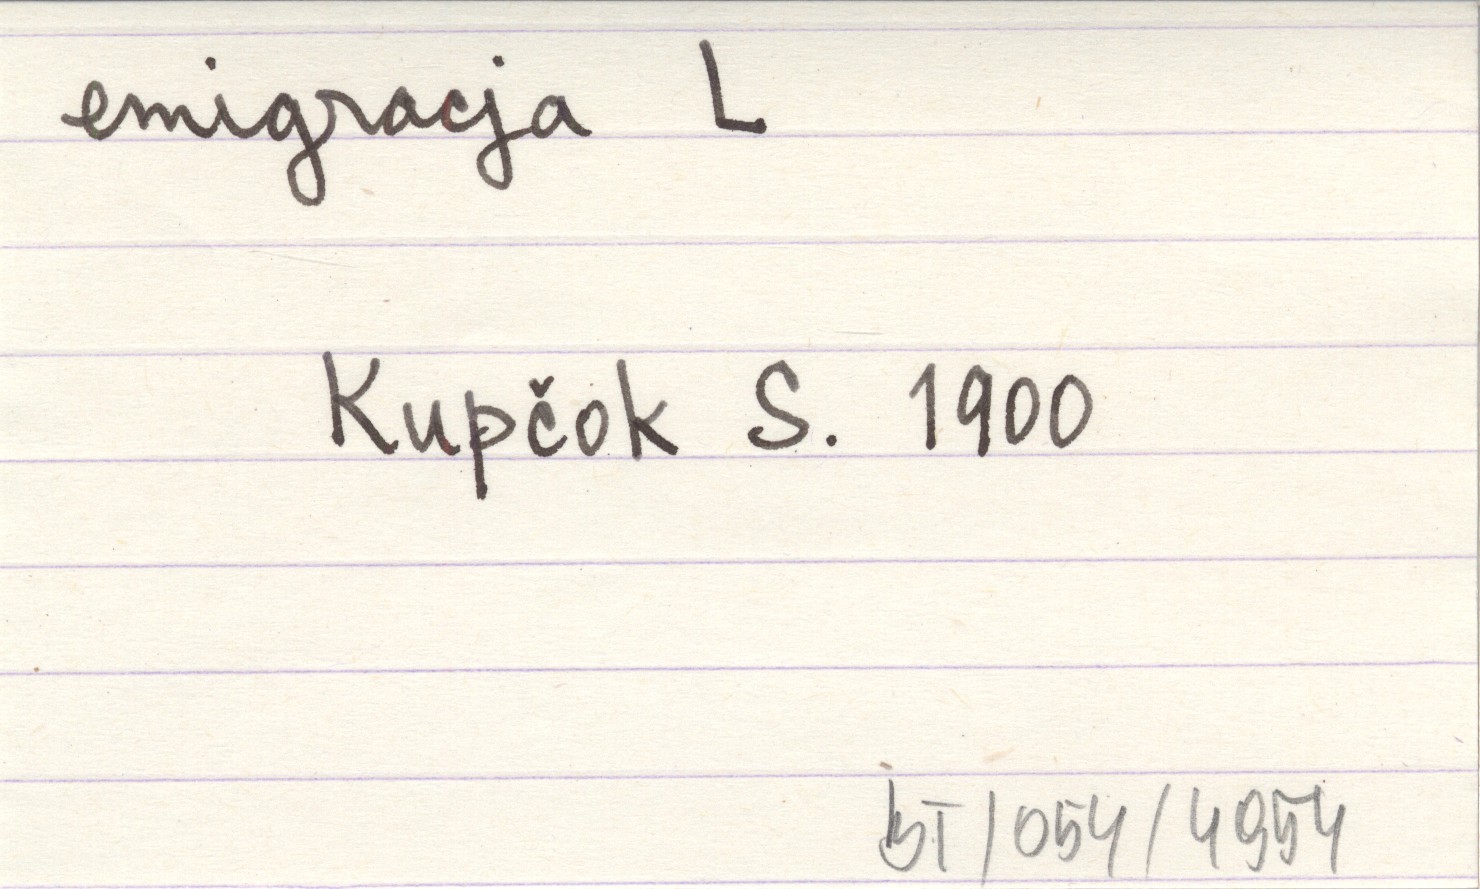 emigracja L
Kupčok S. 1900
BT/054/4954